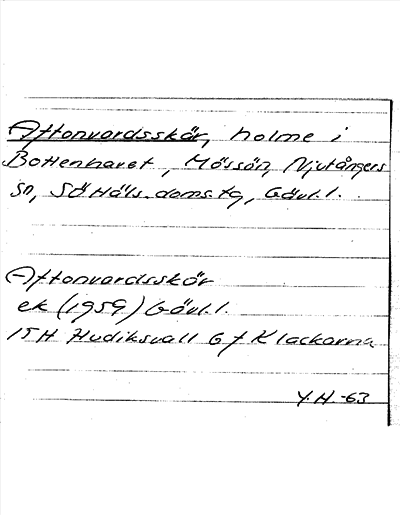 Aftonvardsskär, holme i
Bottenhavet, Mössön, Njutångers
sn, SöHäls. doms.tg, Gävl.l.
Aftonvardsskär
ek (1959) Gävl.l.
15H Hudiksvall 6 f Klackarna
Y.H.-63